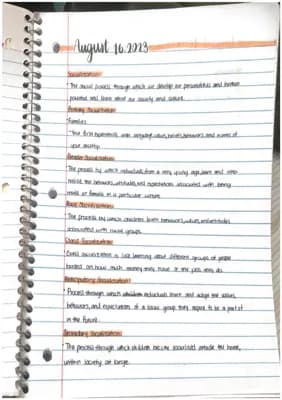 August 16.2023
Socialization
• The social process through which we develop our personalities and human
potential and learn about our society and culture.
Primary Socialization
• Families
• Your first experiences with language, values, beliefs, behaviors, and norms of
your society.
Gender Socialization
• The process by which individuals, from a very young age learn and
the behaviors, attitudes, and expectations associated with being
male or female in a particular culture.
Race Socialization
• The process by which children learn behaviors, values, and attitudes
associated with racial groups.
Class Socialization
• Class socialization is like learning about different groups of people
based on how much money they have or the jobs they do.
Anticipatory Socialization
• Process through which individuals learn and adopt the values,
behaviors, and expectations of a social group they aspire to be a part of
in the future.
Secondary Socialization
• The process through which children become socialized outside the home,
within society at large.